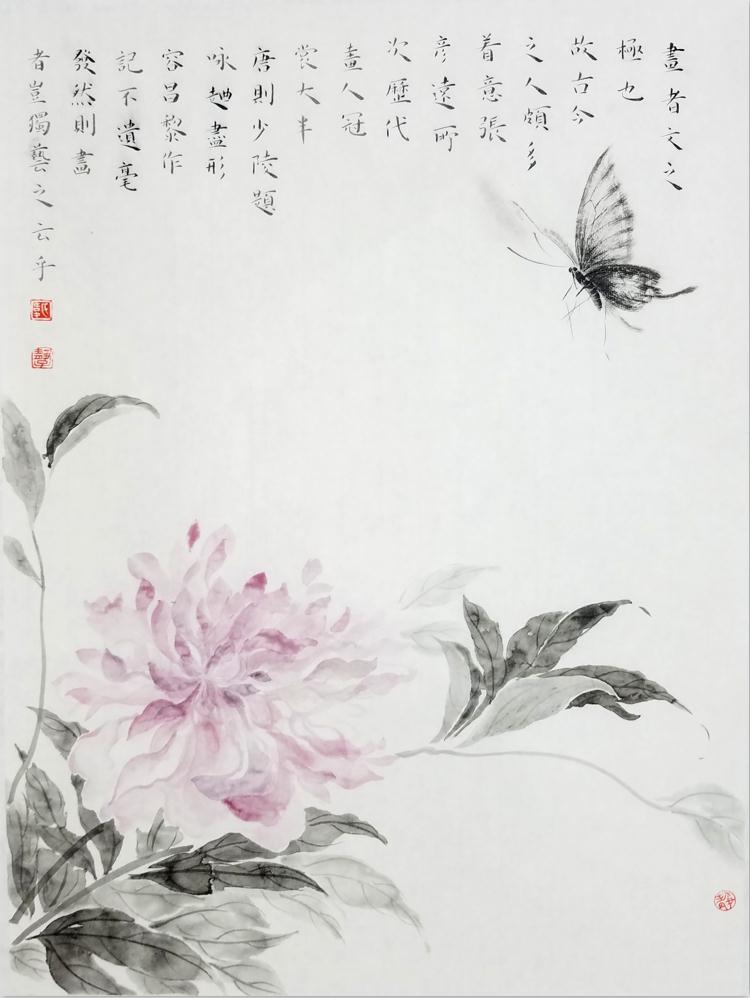 畫者文之
極也
故古今
之人頗多
着意張
彥遠所
次歷代
畫人冠
裳大半
唐則少陵題
咏盡形
容昌黎作
記不遺毫
發然則畫
者豈獨藝之云乎